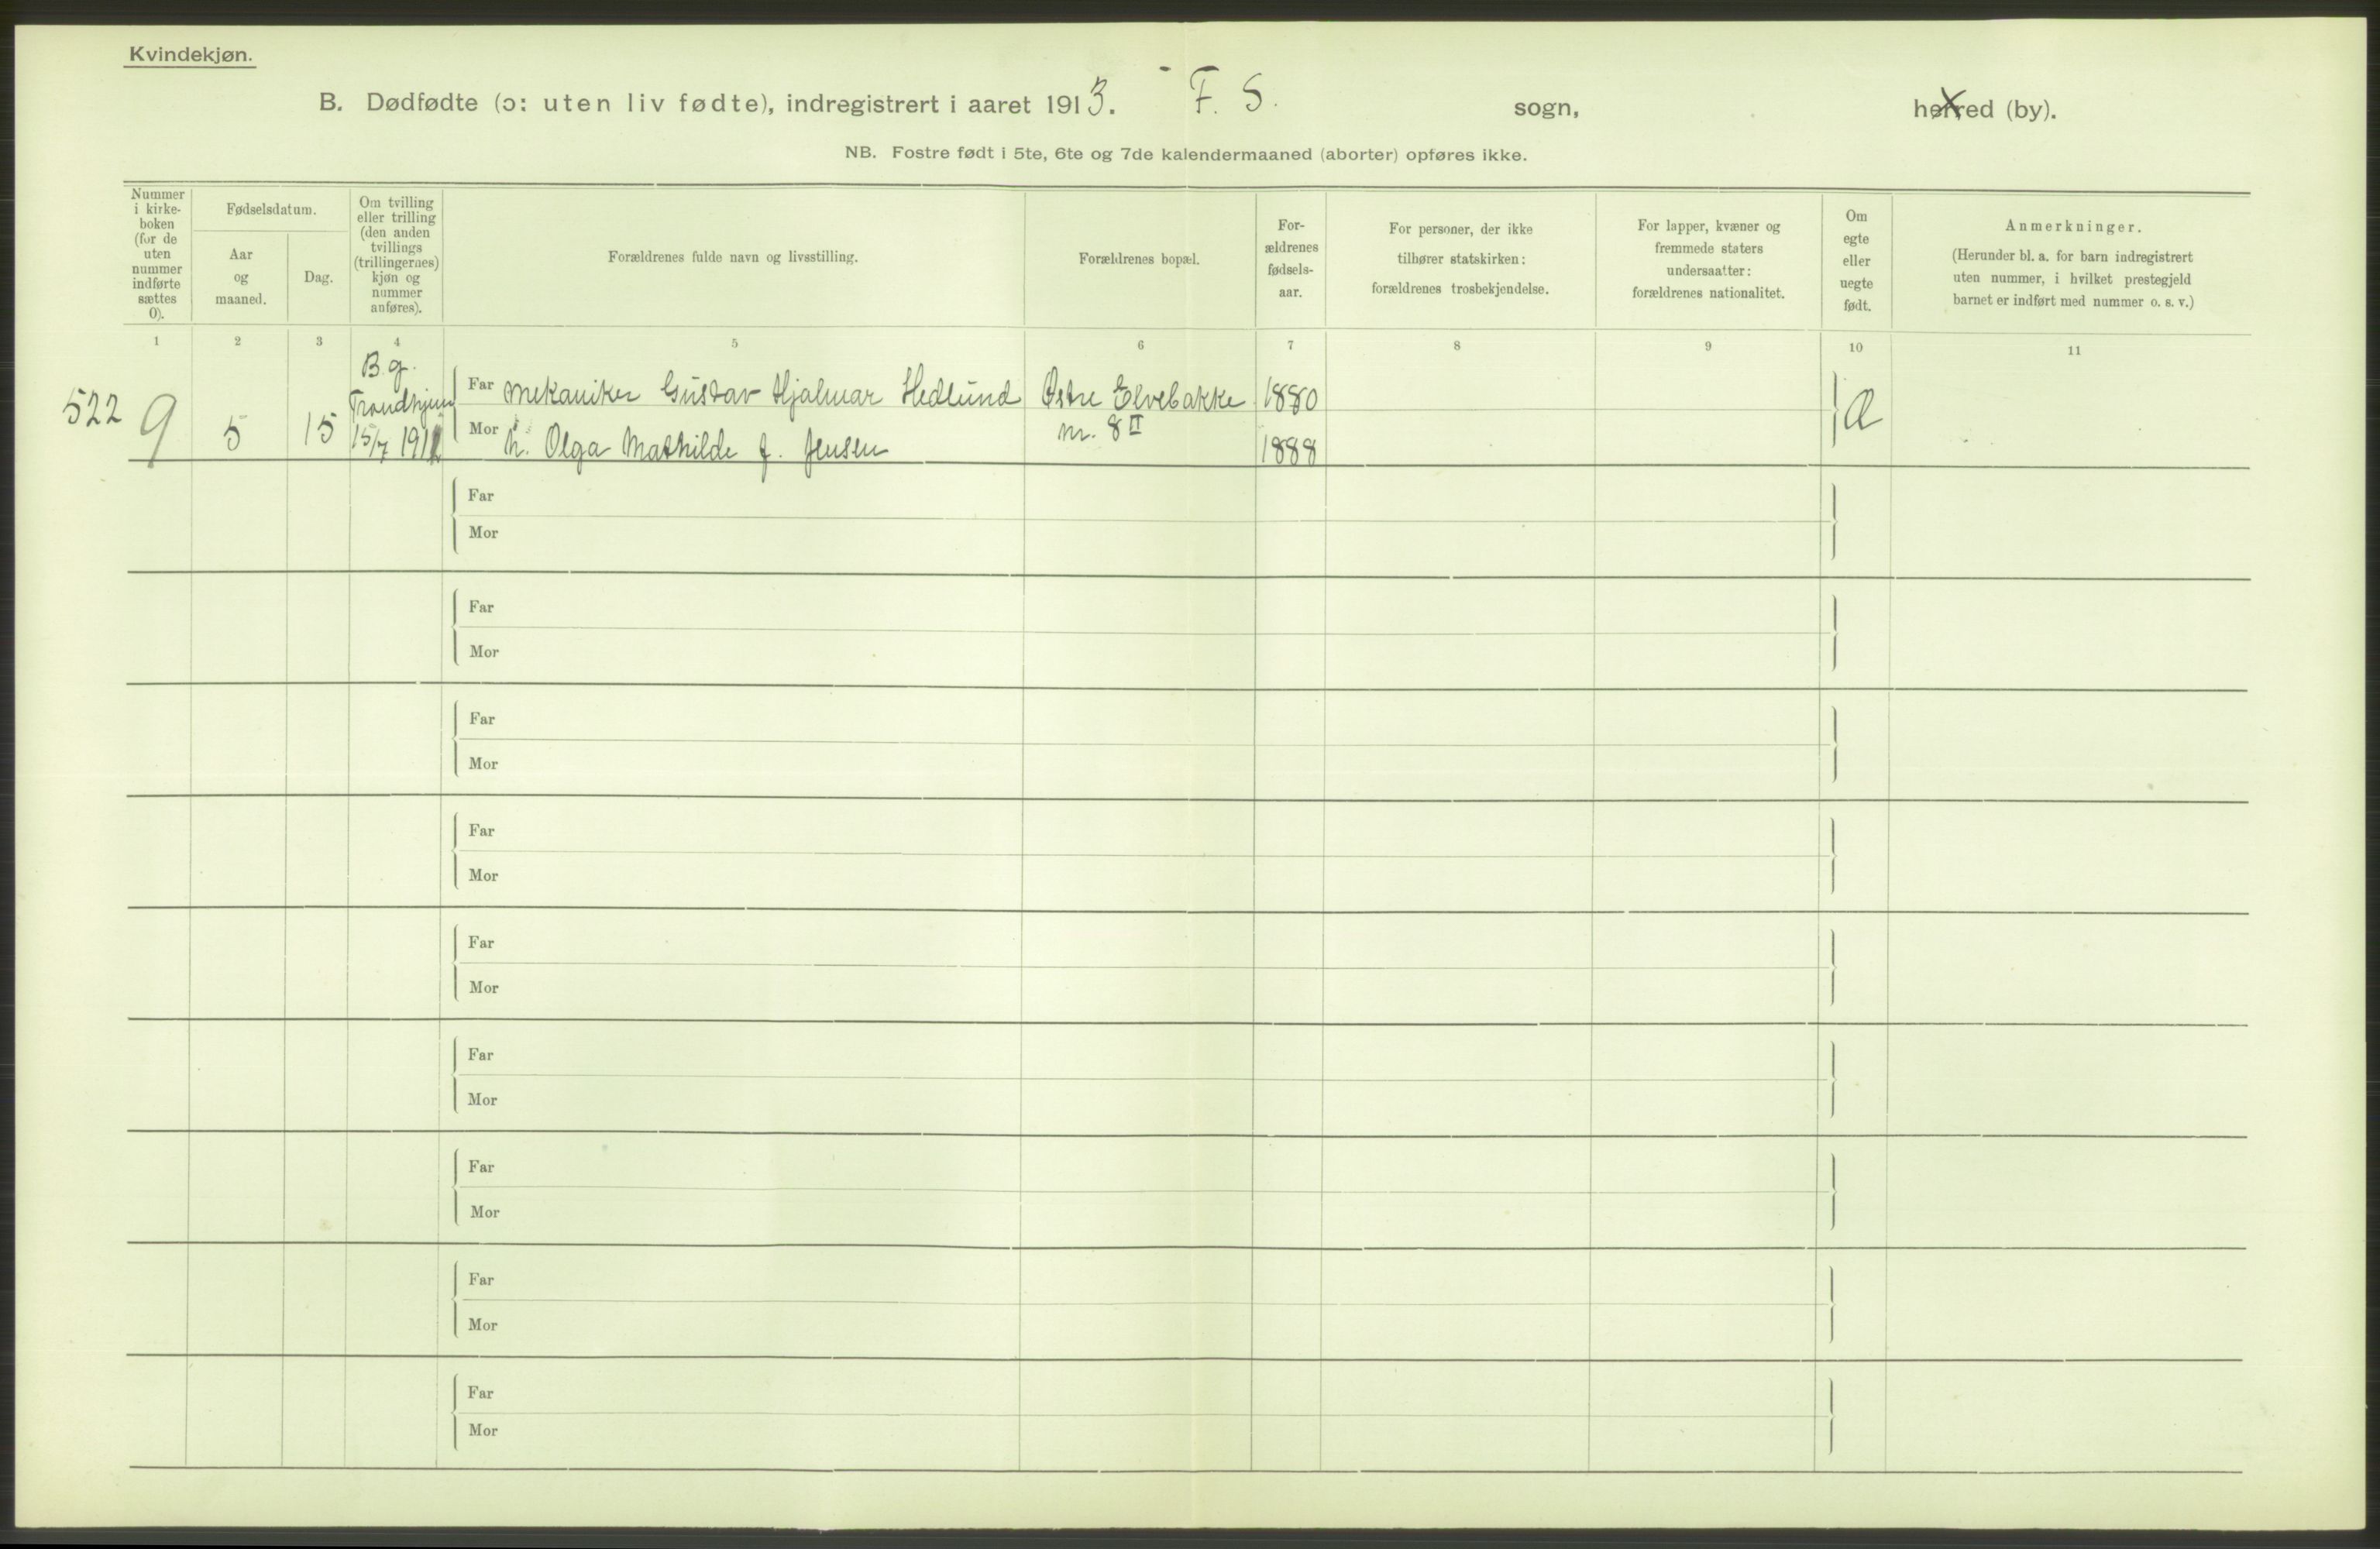 Kvindekjøn.
B. Dødfødte (ɔ: uten liv fødte), indregistrert i aaret 1913. F. S. sogn, herred (by).
NB. Fostre født i 5te, 6te og 7de kalendermaaned (aborter) opføres ikke.
Nummer
i kirke-
boken
(for de
uten
nummer
indførte
sættes
0).
Fødselsdatum.
Aar
og
maaned.
Dag.
Om tvilling
eller trilling
(den anden
tvillings
(trillingernes)
kjøn og
nummer
anføres).
Forældrenes fulde navn og livsstilling.
Forældrenes bopæl.
For-
ældrenes
fødsels-
aar.
For personer, der ikke
tilhører statskirken:
forældrenes trosbekjendelse.
For lapper, kvæner og
fremmede staters
undersaatter:
forældrenes nationalitet.
Om
egte
eller
uegte
født.
Anmerkninger.
(Herunder bl. a. for barn indregistrert
uten nummer, i hvilket prestegjeld
barnet er indført med nummer o. s. v.)
1 2 3 4 5 6 7 8 9 10 11
522 9 5 15
B.g.
Trondhjem
15/7 191
Far Mekaniker Gustav Hjalmar Hedlund
Mor h. Olga Mathilde f. Jensen
Østre Elvebakke
nr. 8 II
1880
1888
Far
Mor
Far
Mor
Far
Mor
Far
Mor
Far
Mor
Far
Mor
Far
Mor
Far
Mor
Far
Mor